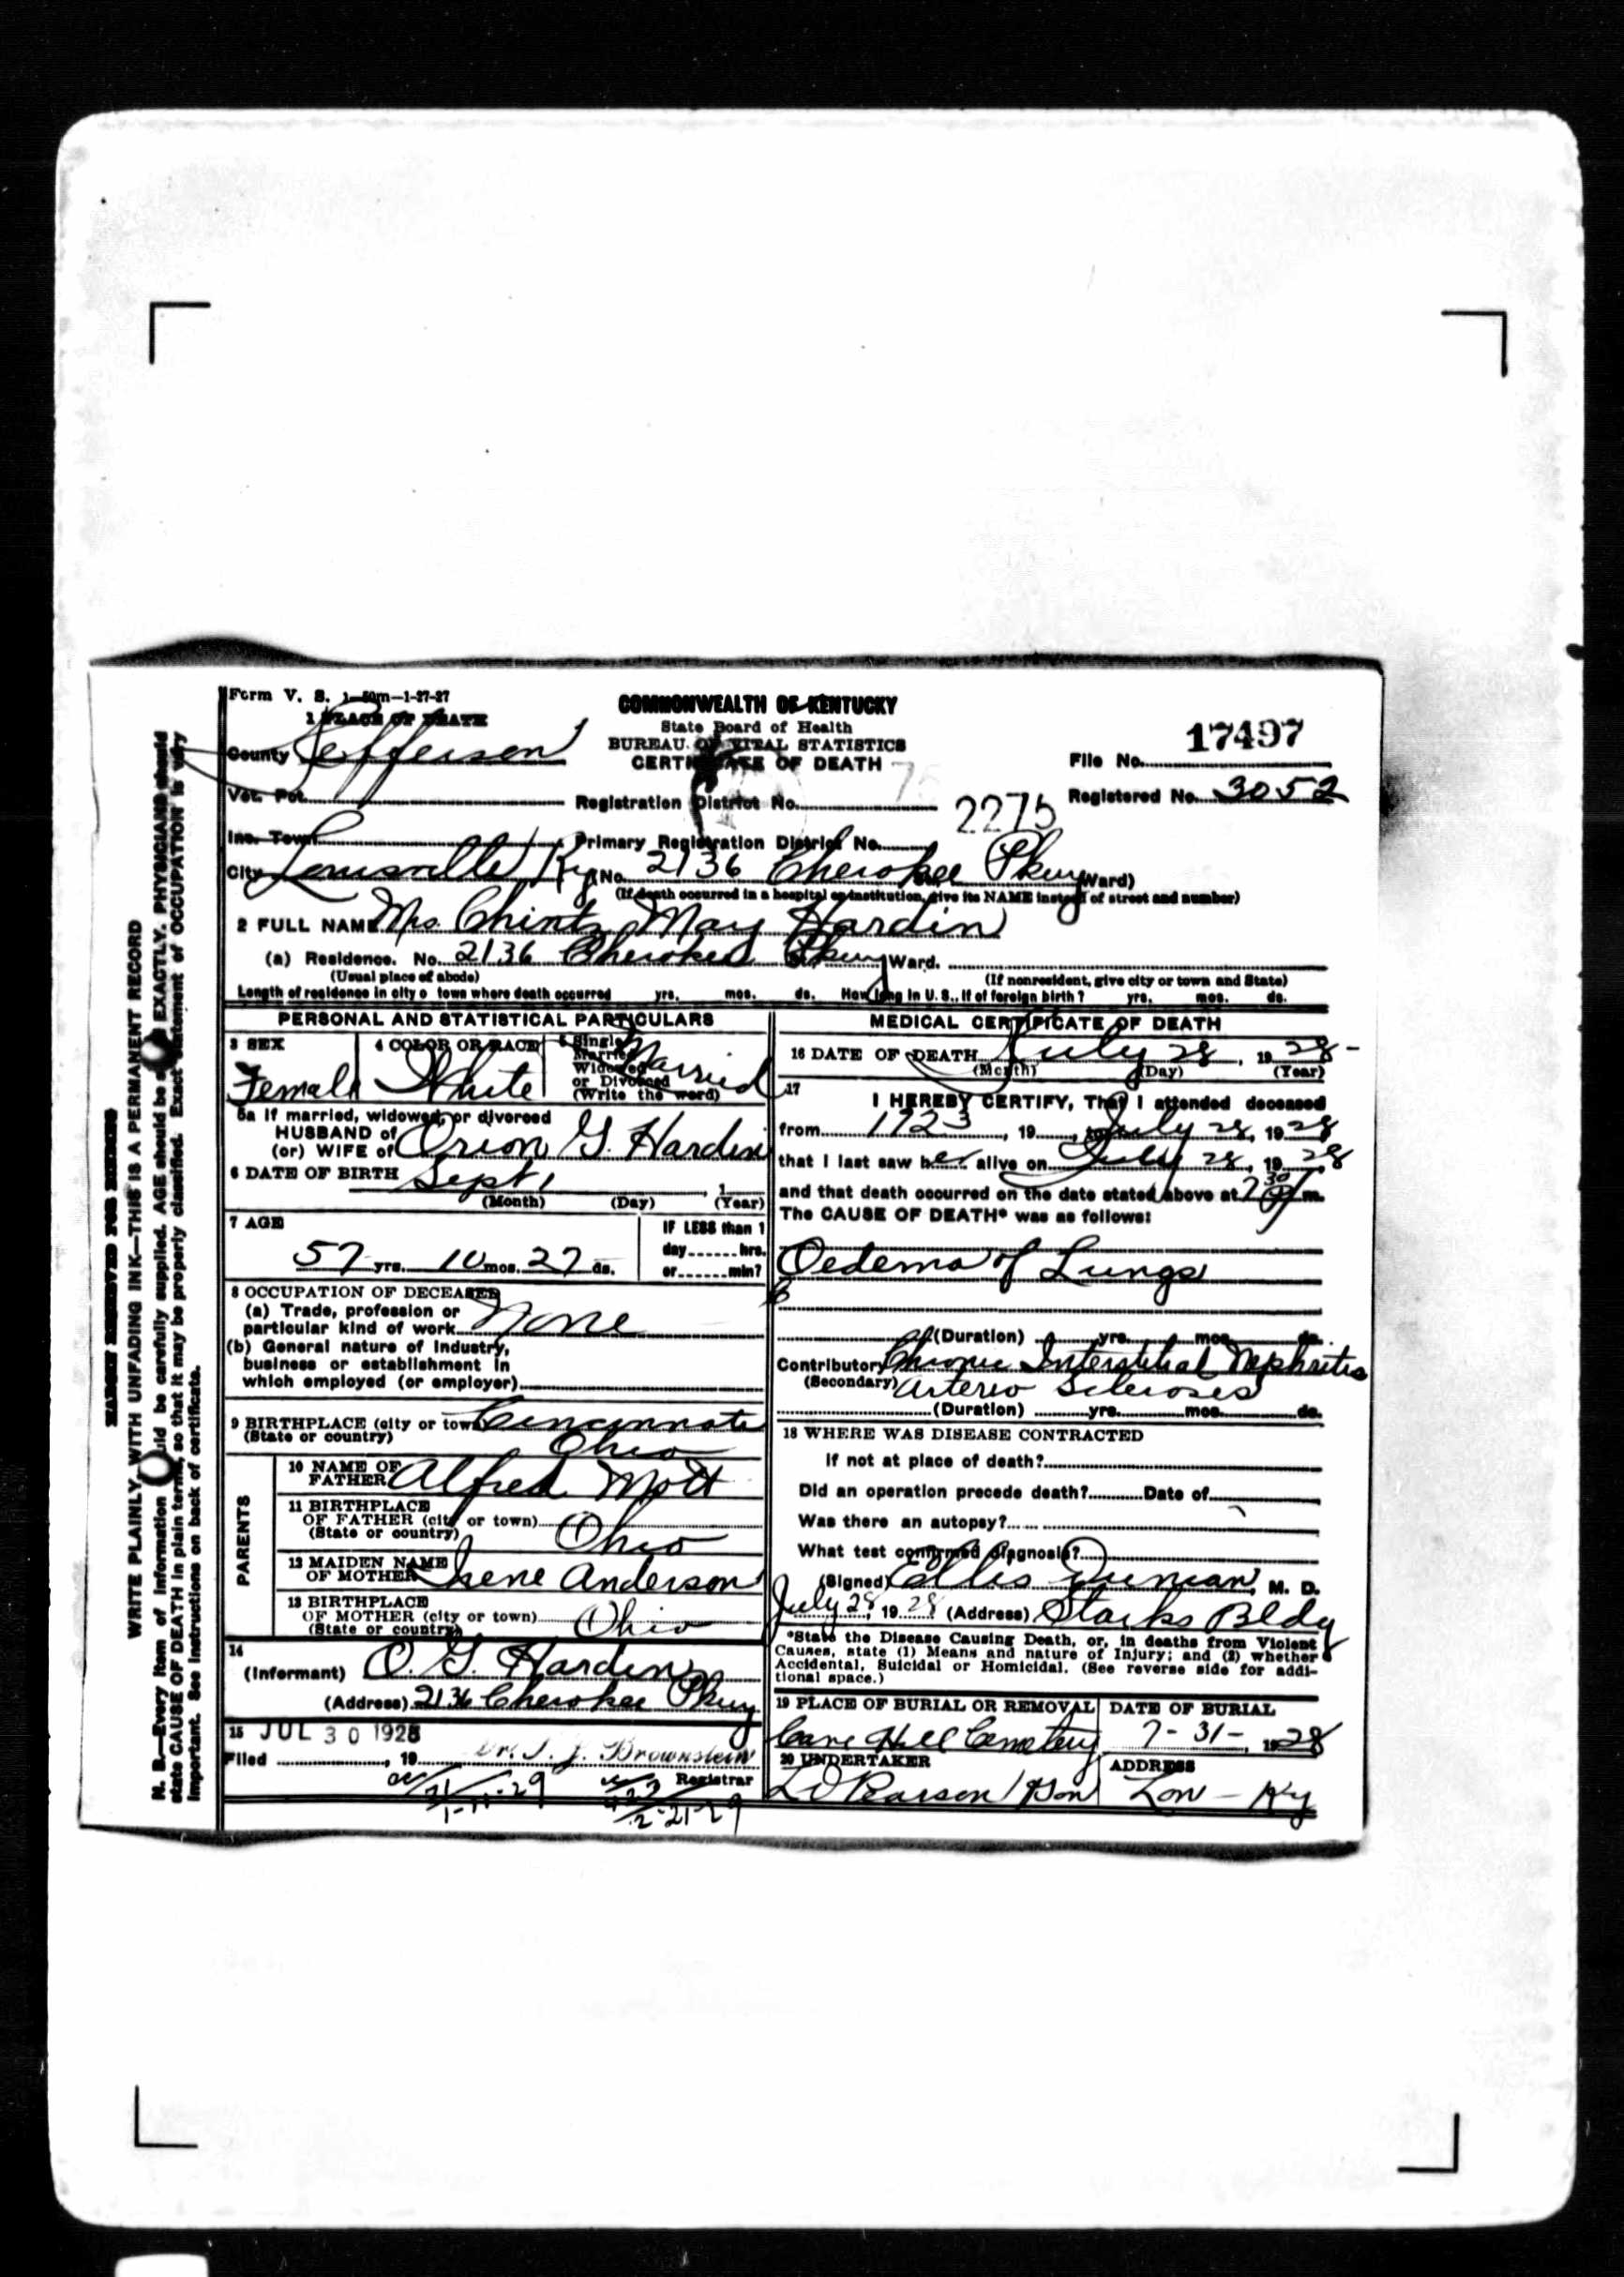 Form V. S. 1-50m-1-27-27
COMMONWEALTH OF KENTUCKY
State Board of Health
BUREAU OF VITAL STATISTICS
CERTIFICATE OF DEATH
1 PLACE OF DEATH
County Jefferson
File No. 17497
Vot. Pct. Registration District No. 75
Registered No. 3052
Inc. Town Primary Registration District No. 2275
City Louisville Ky (No. 2136 Cherokee Pkwy Ward)
(If death occurred in a hospital or institution, give its NAME instead of street and number)
2 FULL NAME Mrs. May Hardin
(a) Residence. No. 2136 Cherokee Pkwy Ward.
(Usual place of abode) (If nonresident, give city or town and State)
Length of residence in city o town where death occurred yrs. mos. ds. How long in U. S., if of foreign birth? yrs. mos. ds.
PERSONAL AND STATISTICAL PARTICULARS
3 SEX
Female
4 COLOR OR RACE
White
5 Single
Married
Widowed
or Divorced
(Write the word)
Married
5a If married, widowed, or divorced
HUSBAND of
(or) WIFE of Orion G. Hardin
6 DATE OF BIRTH Sept 1, 1
(Month) (Day) (Year)
7 AGE
57 yrs. 10 mos. 27 ds.
IF LESS than 1
day......hrs.
or......min?
8 OCCUPATION OF DECEASED
(a) Trade, profession or
particular kind of work None
(b) General nature of industry,
business or establishment in
which employed (or employer)
9 BIRTHPLACE (city or town) Cincinnati
(State or country) Ohio
PARENTS
10 NAME OF
FATHER Alfred Mott
11 BIRTHPLACE
OF FATHER (city or town) Ohio
(State or country)
12 MAIDEN NAME
OF MOTHER Irene Anderson
13 BIRTHPLACE
OF MOTHER (city or town) Ohio
(State or country)
14
(Informant) O. G. Hardin
(Address) 2136 Cherokee Pkwy
15 JUL 30 1928
Filed , 19 Dr. J. J. Brownstein
Registrar
1-11-29 2-21-29
MEDICAL CERTIFICATE OF DEATH
16 DATE OF DEATH July 28, 1928-
(Month) (Day) (Year)
17
I HEREBY CERTIFY, That I attended deceased
from 1923, 19 , to July 28, 1928
that I last saw her alive on July 28, 1928
and that death occurred on the date stated above at 7 30 P m.
The CAUSE OF DEATH* was as follows:
Oedema of Lungs
(Duration) yrs. mos. ds.
Contributory Chronic Interstitial Nephritis
(Secondary) Arterio Sclerosis
(Duration) yrs. mos. ds.
18 WHERE WAS DISEASE CONTRACTED
If not at place of death?
Did an operation precede death? Date of
Was there an autopsy?
What test confirmed diagnosis?
(Signed) Ellis Duncan, M. D.
July 28, 1928 (Address) Starks Bldg
*State the Disease Causing Death, or, in deaths from Violent
Causes, state (1) Means and nature of Injury; and (2) whether
Accidental, Suicidal or Homicidal. (See reverse side for addi-
tional space.)
19 PLACE OF BURIAL OR REMOVAL
Cave Hill Cemetery
DATE OF BURIAL
7-31-, 1928
20 UNDERTAKER
L D Pearson Son
ADDRESS
Lou - Ky
MARGIN RESERVED FOR BINDING
WRITE PLAINLY, WITH UNFADING INK—THIS IS A PERMANENT RECORD
N. B.—Every item of information should be carefully supplied. AGE should be stated EXACTLY. PHYSICIANS should
state CAUSE OF DEATH in plain terms, so that it may be properly classified. Exact statement of OCCUPATION is very
important. See instructions on back of certificate.